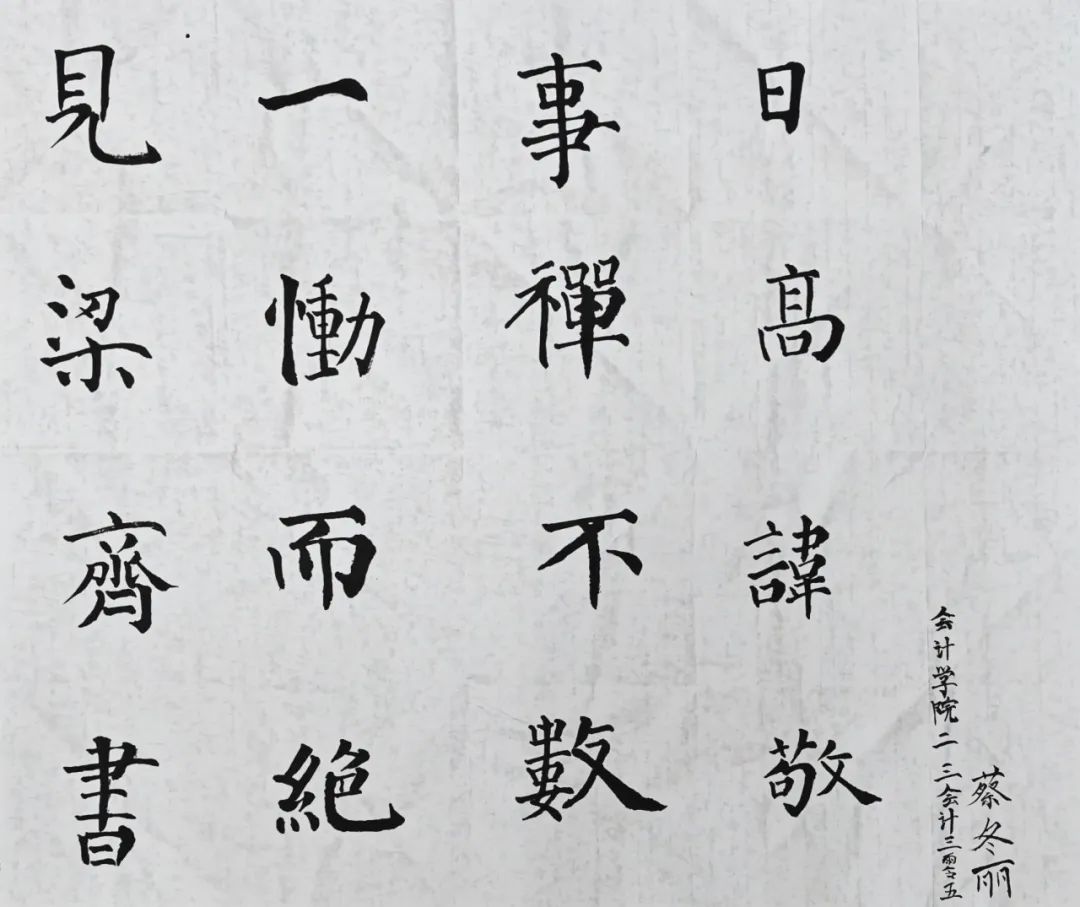 蔡冬丽
会计学院二三会计三零五
日髙諱敬
事禪不數
一慟而絶
見梁齊書